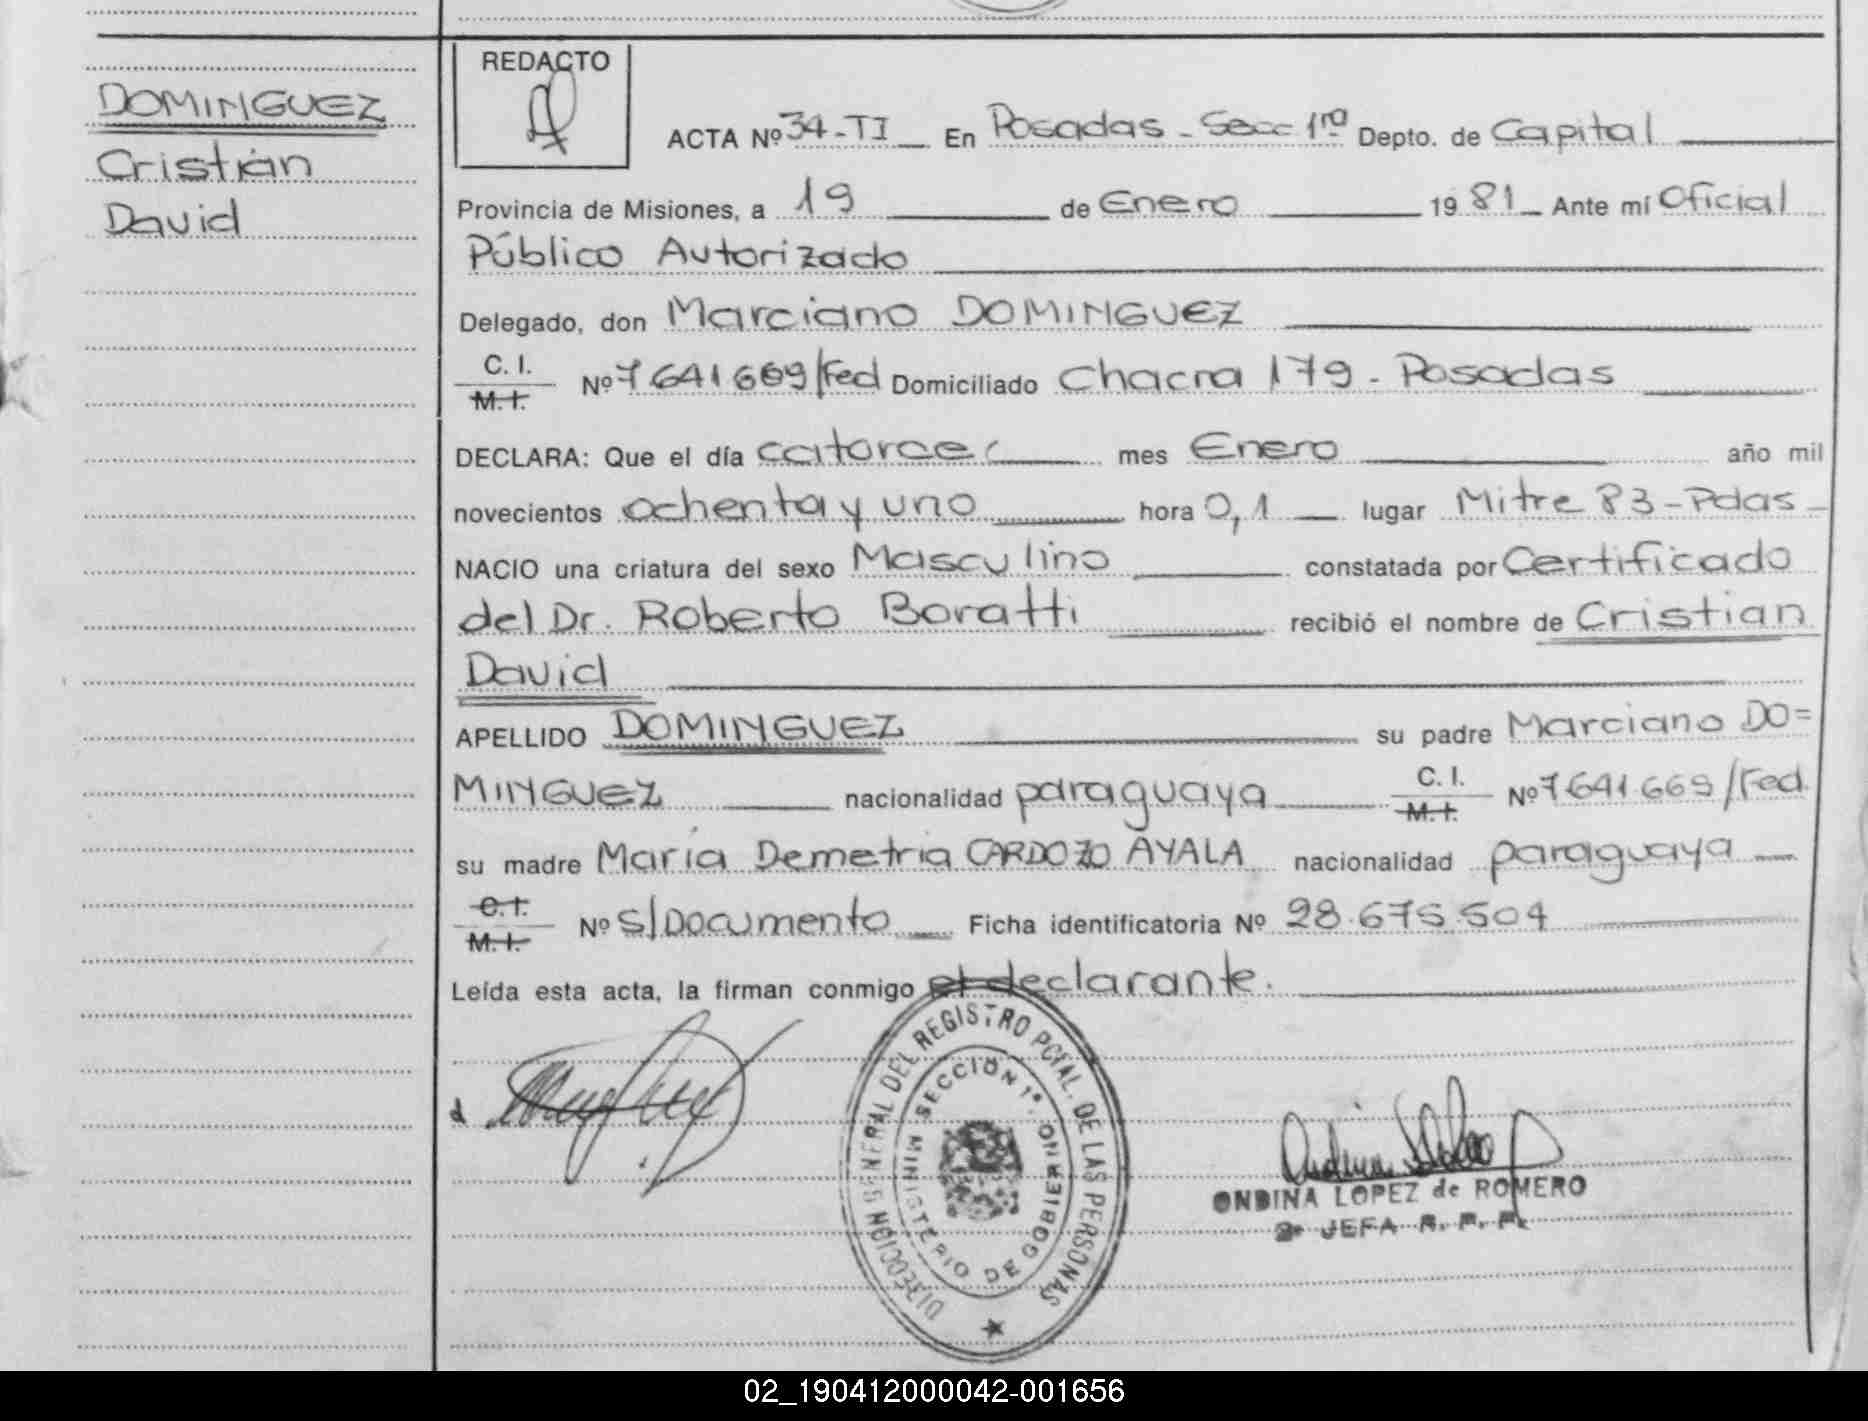 DOMINGUEZ
Cristián
David
REDACTO
ACTA Nº 34-TI En Posadas - Secc 1ra Depto. de Capital
Provincia de Misiones, a 19 de Enero 1981 Ante mí Oficial
Público Autorizado
Delegado, don Marciano DOMINGUEZ
C. I.
M. I. Nº 7.641.669/Fed Domiciliado Chacra 179 - Posadas
DECLARA: Que el día catorce mes Enero año mil
novecientos ochenta y uno hora 0,1 lugar Mitre 83-Pdas-
NACIO una criatura del sexo Masculino constatada por Certificado
del Dr. Roberto Boratti recibió el nombre de Cristian
David
APELLIDO DOMINGUEZ su padre Marciano DO=
MINGUEZ nacionalidad paraguaya C. I. M. I. Nº 7.641.669/Fed.
su madre María Demetria CARDOZO AYALA nacionalidad paraguaya
C. I.
M. I. Nº S/Documento Ficha identificatoria Nº 28.675.504
Leída esta acta, la firman conmigo el declarante.
DIRECCION GENERAL DEL REGISTRO PCIAL. DE LAS PERSONAS
SECCION 1ª.
MINISTERIO DE GOBIERNO
ONDINA LOPEZ de ROMERO
2ª JEFA R. P. P.
02_190412000042-001656